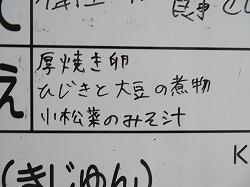 て
食事
え
厚焼き卵
ひじきと大豆の煮物
小松菜のみそ汁
(きじゅん)
K